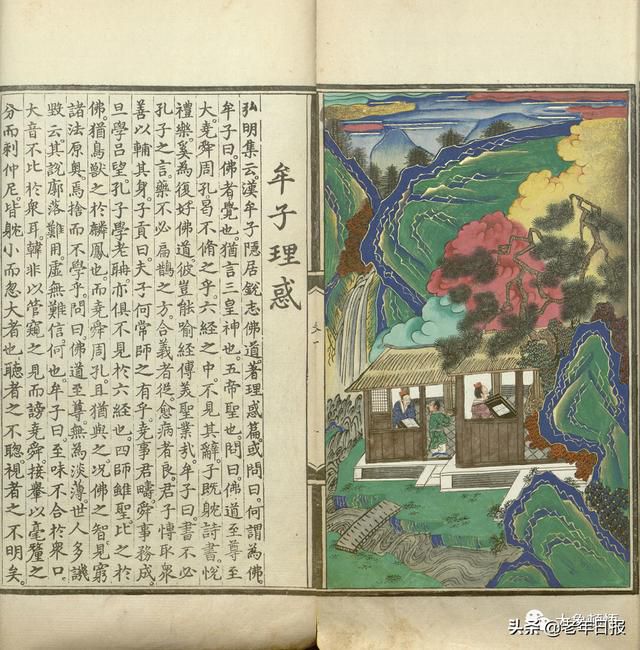 牟子理惑
弘明集云。漢牟子隱居銳志佛道。著理惑篇。或問曰。何謂為佛。
牟子曰。佛者覺也。猶言三皇神也。五帝聖也。問曰。佛道至尊至
大。堯舜周孔曷不脩之乎。六經之中。不見其辭。子既躭詩書。悅
禮樂。奚為復好佛道。彼豈能喻經傳美聖業哉。牟子曰。書不必
孔子之言。藥不必扁鵲之方。合義者從。愈病者良。君子博取眾
善以輔其身。子貢曰。夫子何常師之有乎。堯事君疇。舜事務成。
旦學呂望。孔子學老聃。亦俱不見於六經也。四師雖聖。比之於
佛。猶鳥獸之於麟鳳也。而堯舜周孔且猶與之。况佛之智見窮
諸法原奧。焉捨而不學乎。問曰。佛道至尊。無為淡薄。世人多譏
毀云其說廓落難用。虛無難信。何也。牟子曰。至味不合於眾口。
大音不比於眾耳。韓非以管窺之見而謗堯舜。接輿以毫釐之
分而刺仲尼。皆躭小而忽大者也。聽者之不聰。視者之不明矣。
头条 @老年日报